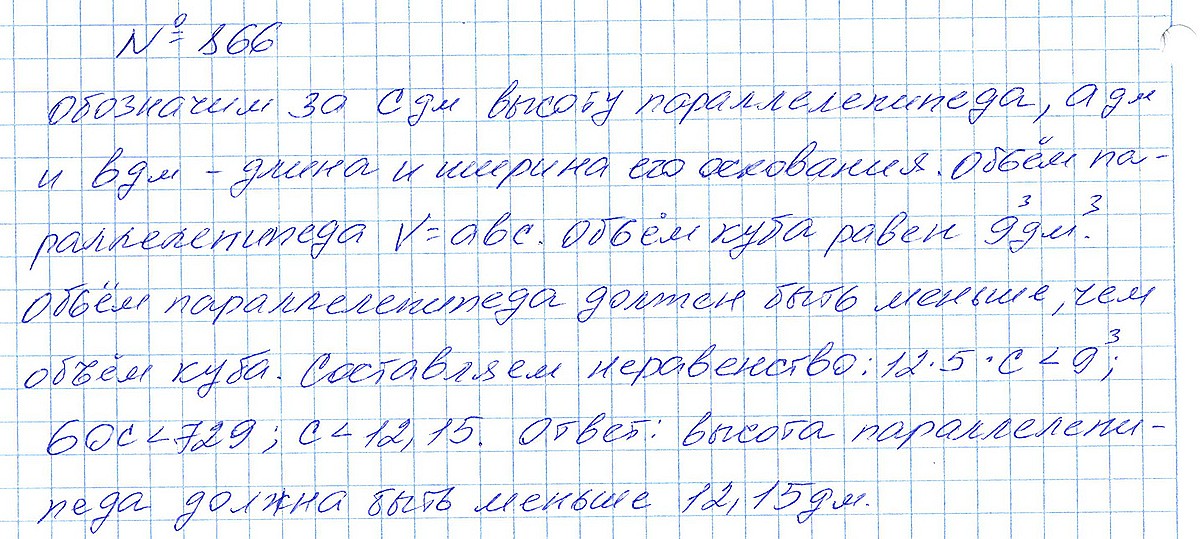 № 866
Обозначим за С дм высоту параллелепипеда, а дм
и в дм - длина и ширина его основания. Объём па-
раллелепипеда V = авс. Объём куба равен 9³дм³.
Объём параллелепипеда должен быть меньше, чем
объём куба. Составляем неравенство: 12·5·с < 9³;
60с < 729; с < 12,15. Ответ: высота параллелепи-
педа должна быть меньше 12,15дм.